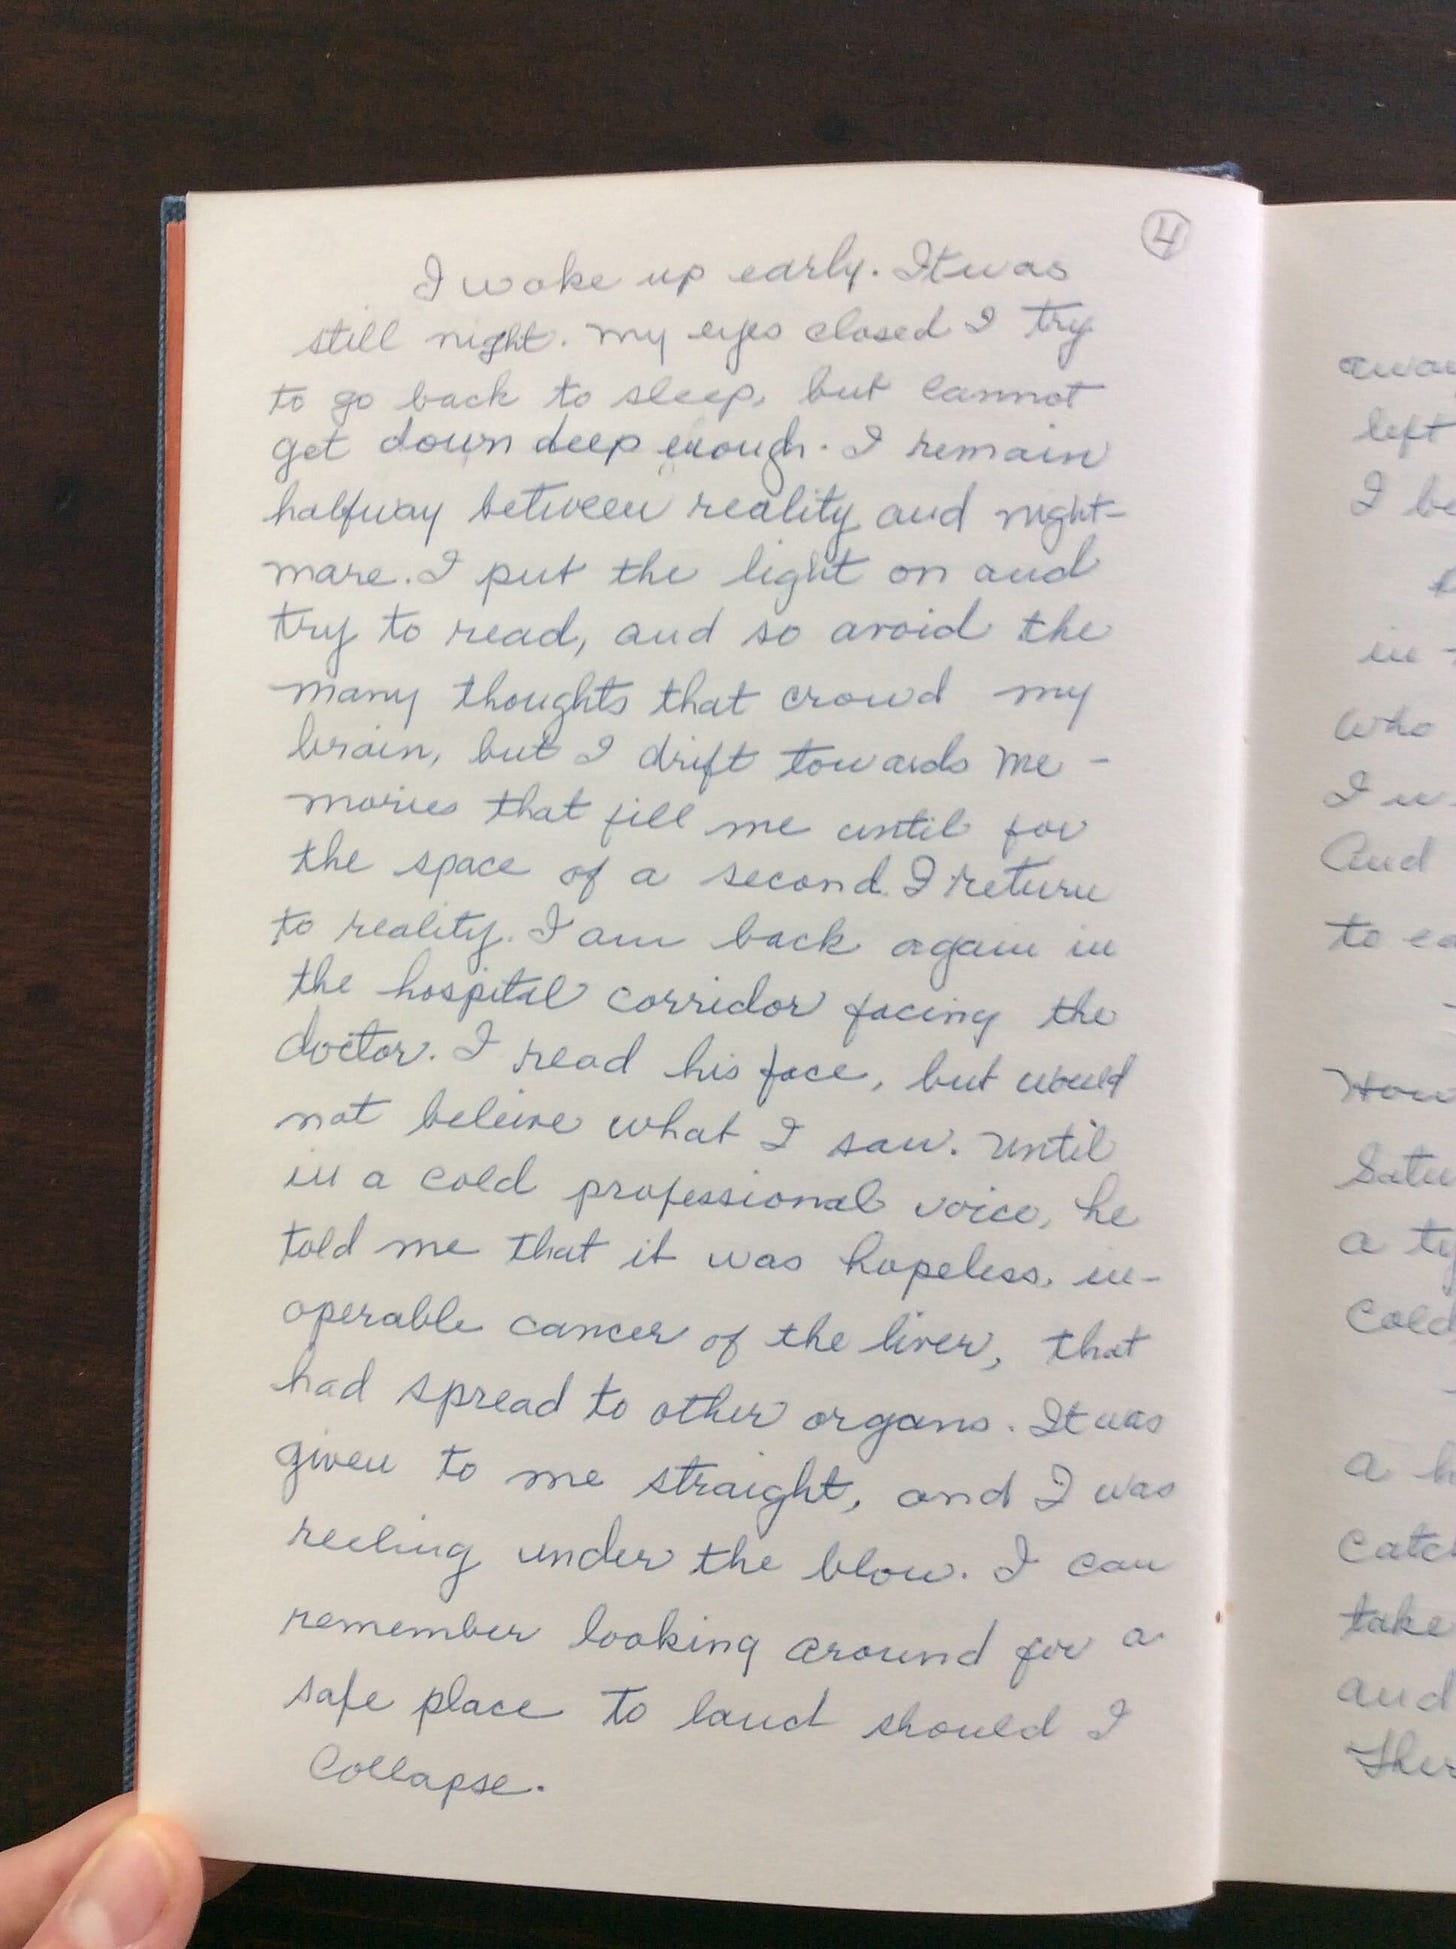 4
I woke up early. It was
still night. My eyes closed I try
to go back to sleep, but cannot
get down deep enough. I remain
halfway between reality and night-
mare. I put the light on and
try to read, and so avoid the
many thoughts that crowd my
brain, but I drift towards me-
mories that fill me until for
the space of a second I return
to reality. I am back again in
the hospital corridor facing the
doctor. I read his face, but would
not beleive what I saw. Until
in a cold professional voice, he
told me that it was hopeless, in-
operable cancer of the liver, that
had spread to other organs. It was
given to me straight, and I was
reeling under the blow. I can
remember looking around for a
safe place to land should I
collapse.
left
I
in
who
I
And
to
a
Cold
a
take
and